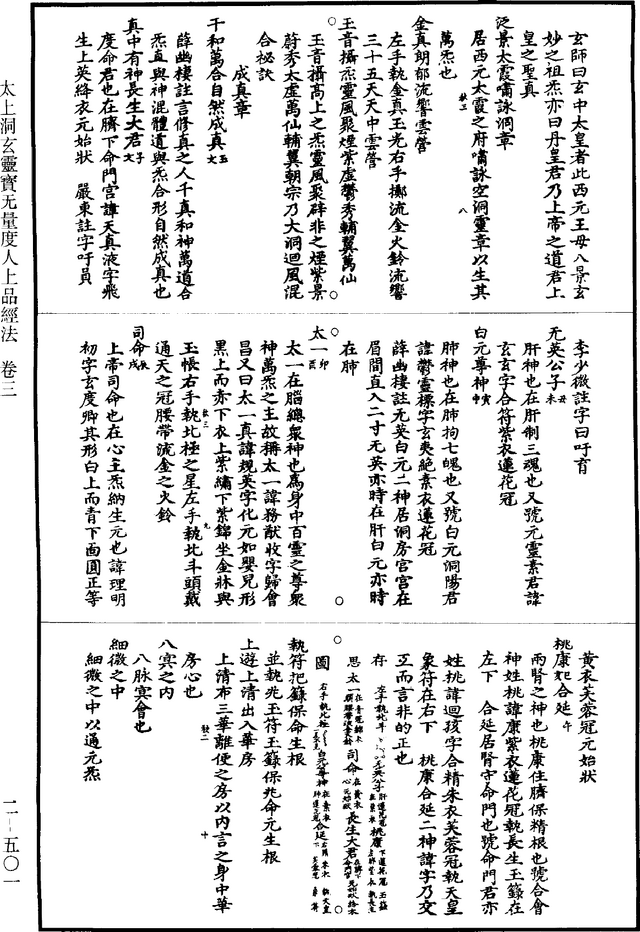 玄師曰玄中太皇者此西元王母八景玄
妙之祖炁亦曰丹皇君乃上帝之道君上
皇之聖真
泛景太霞嘯詠洞章
居西元太霞之府嘯詠空洞靈章以生其
萬炁也
金真朗郁流響雲營
左手執金真玉光右手擲流金火鈴流響
三十五天天中雲營
玉音攝炁靈風聚煙紫虛鬱秀輔翼萬仙
玉音攝高上之炁靈風聚辟非之煙紫景
蔚秀太虛萬仙輔翼朝宗乃大洞迴風混
合祕訣
成真章
千和萬合自然成真
薛幽棲註言修真之人千真和神萬道合
炁直與神混體道與炁合形自然成真也
真中有神長生大君
度命君也在臍下命門宮諱天真液字飛
生上英絳衣元始狀 嚴東註字吁員
李少微註字曰吁育
无英公子
肝神也在肝制三魂也又號元靈素君諱
玄玄字合符紫衣蓮花冠
白元尊神
肺神也在肺拘七魄也又號白元洞陽君
諱鬱靈標字玄夷絶素衣蓮花冠
薛幽棲註无英白元二神居洞房宮宮在
眉間直入二寸无英亦時在肝白元亦時
在肺
太一
太一在腦總衆神也爲身中百靈之尊衆
神萬炁之主故稱太一諱務猷收字歸會
昌又曰太一真諱規英字化元如嬰兒形
黑上而赤下衣上紫繡下紫錦坐金牀與
玉帳右手執北極之星左手執北斗頭戴
通天之冠腰帶流金之火鈴
司命
上帝司命也在心主炁納生元也諱理明
初字玄度卿其形白上而青下面圓正等
黃衣芙蓉冠元始狀
桃康合延
兩腎之神也桃康住臍保精根也號合會
神姓桃諱康紫衣蓮花冠執長生玉籙在
左下 合延居腎守命門也號命門君亦
姓桃諱迴孩字合精朱衣芙蓉冠執天皇
象符在右下 桃康合延二神諱字乃交
互而言非的正也
存
思
圖
執符把籙保命生根
並執兆王符玉籙保兆命元生根
上遊上清出入華房
上清布三華離便之房以内言之身中華
房心也
八冥之内
八脉冥會也
細微之中
細微之中以通元炁
太上洞玄靈寶无量度人上品經法 卷三
二-五〇一